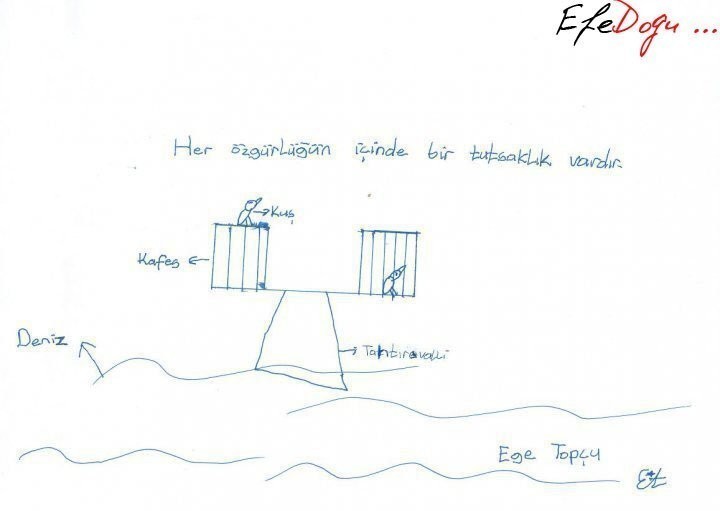 EfeDogu ...
Her özgürlüğün içinde bir tutsaklık vardır.
Kuş
Kafes
Deniz
Tahtıravalli
Ege Topçu